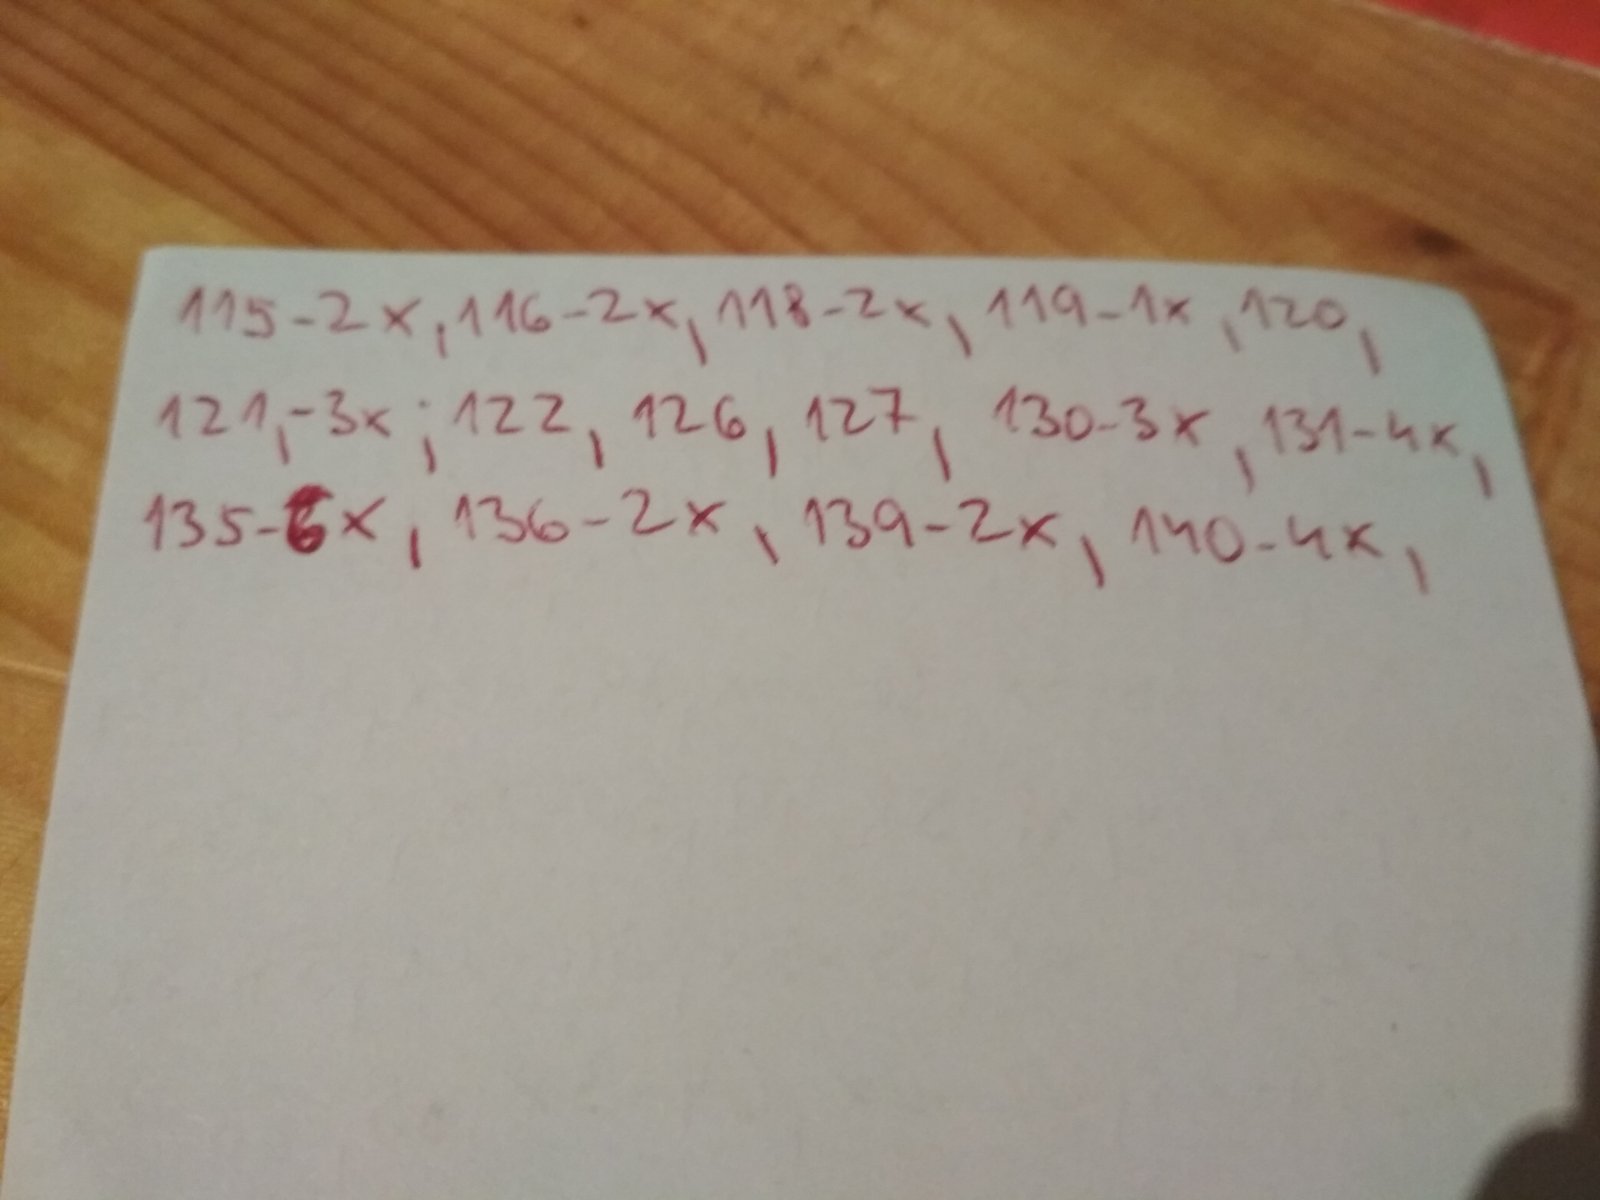 115-2x, 116-2x, 118-2x, 119-1x, 120,
121,-3x; 122, 126, 127, 130-3x, 131-4x,
135-6x, 136-2x, 139-2x, 140-4x,